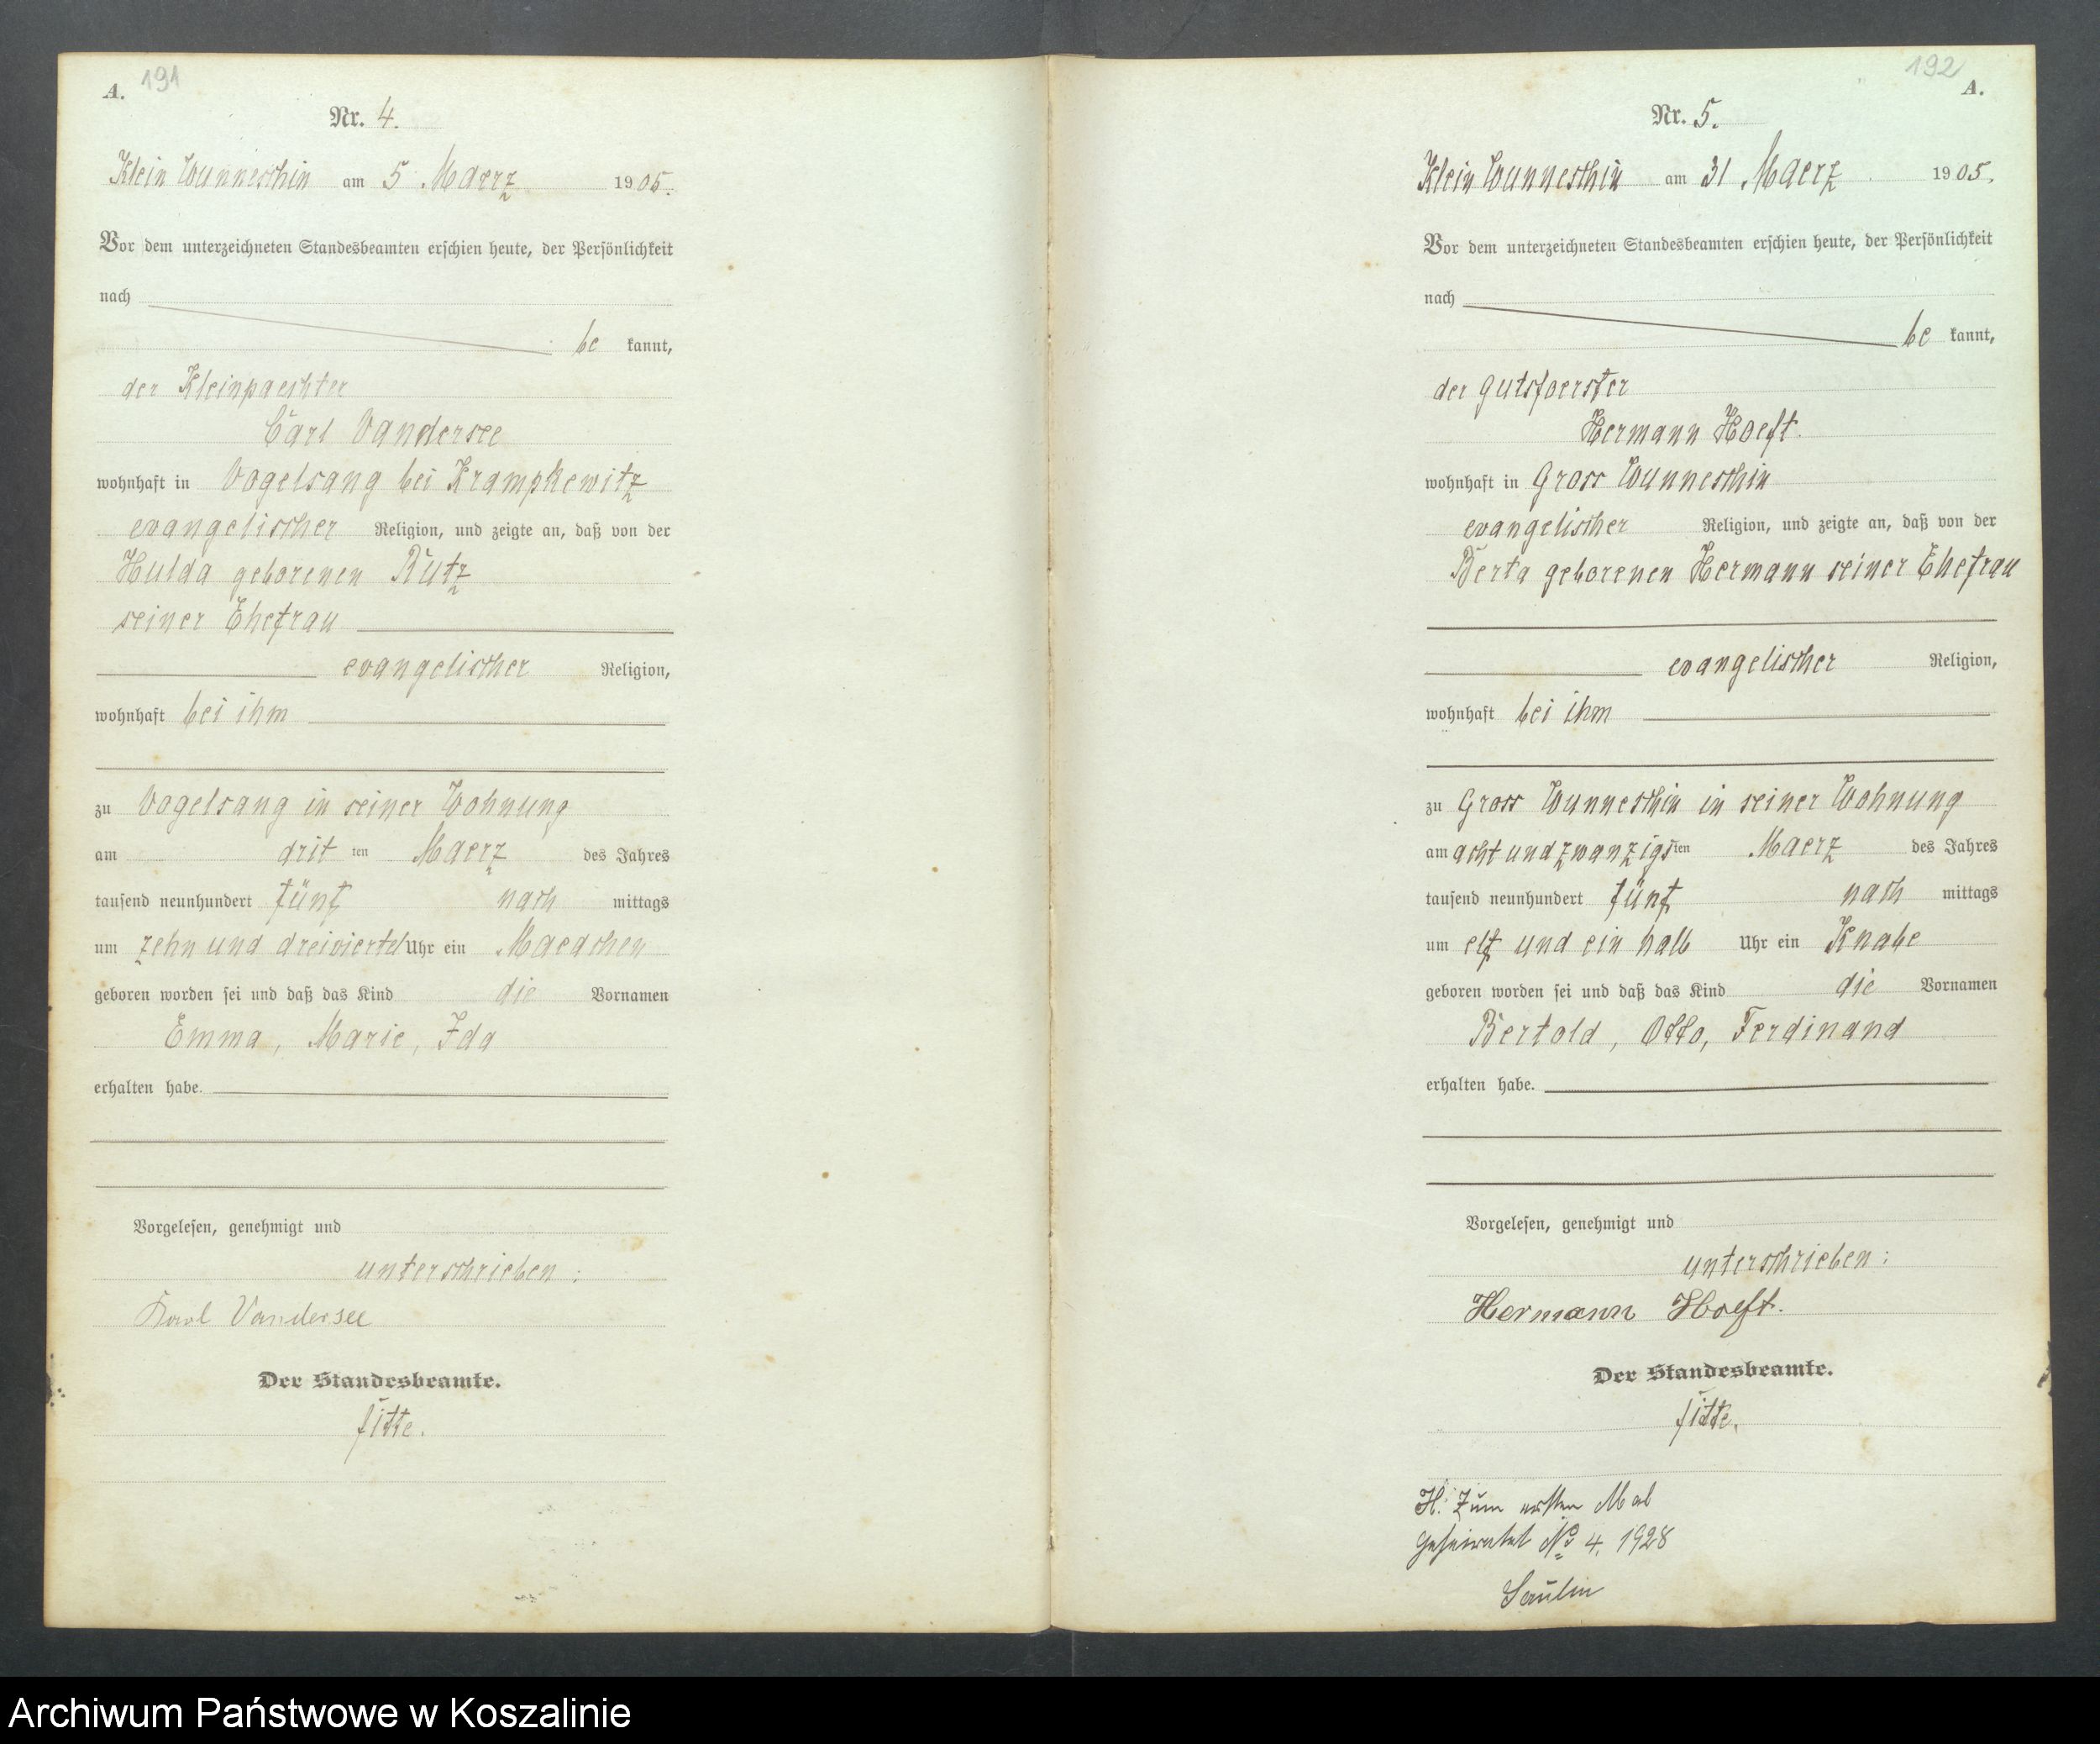 A. 191
Nr. 4.
Klein Wunneschin am 5 Maerz 1905.
Vor dem unterzeichneten Standesbeamten erschien heute, der Persönlichkeit
nach
be kannt,
der Kleinpaechter
Carl Vandersee
wohnhaft in Vogelsang bei Krampkewitz
evangelischer Religion, und zeigte an, daß von der
Hulda geborenen Rutz
seiner Ehefrau
evangelischer Religion,
wohnhaft bei ihm
zu Vogelsang in seiner Wohnung
am drit ten Maerz des Jahres
tausend neunhundert fünf nach mittags
um zehn und dreiviertel Uhr ein Maedchen
geboren worden sei und daß das Kind die Vornamen
Emma, Marie, Ida
erhalten habe.
Vorgelesen, genehmigt und
unterschrieben:
Karl Vandersee
Der Standesbeamte.
fitte.
192 A.
Nr. 5.
Klein Wunneschin am 31 Maerz 1905.
Vor dem unterzeichneten Standesbeamten erschien heute, der Persönlichkeit
nach
be kannt,
der Gutsfoerster
Hermann Hoeft.
wohnhaft in Gross Wunneschin
evangelischer Religion, und zeigte an, daß von der
Berta geborenen Hermann seiner Ehefrau
evangelischer Religion,
wohnhaft bei ihm
zu Gross Wunneschin in seiner Wohnung
am acht und zwanzigs ten Maerz des Jahres
tausend neunhundert fünf nach mittags
um elf und ein halb Uhr ein Knabe
geboren worden sei und daß das Kind die Vornamen
Bertold, Otto, Ferdinand
erhalten habe.
Vorgelesen, genehmigt und
unterschrieben:
Hermann Hoeft.
Der Standesbeamte.
fitte.
H. Zum ersten Mal
geheiratet No 4. 1928
Saulin
Archiwum Państwowe w Koszalinie